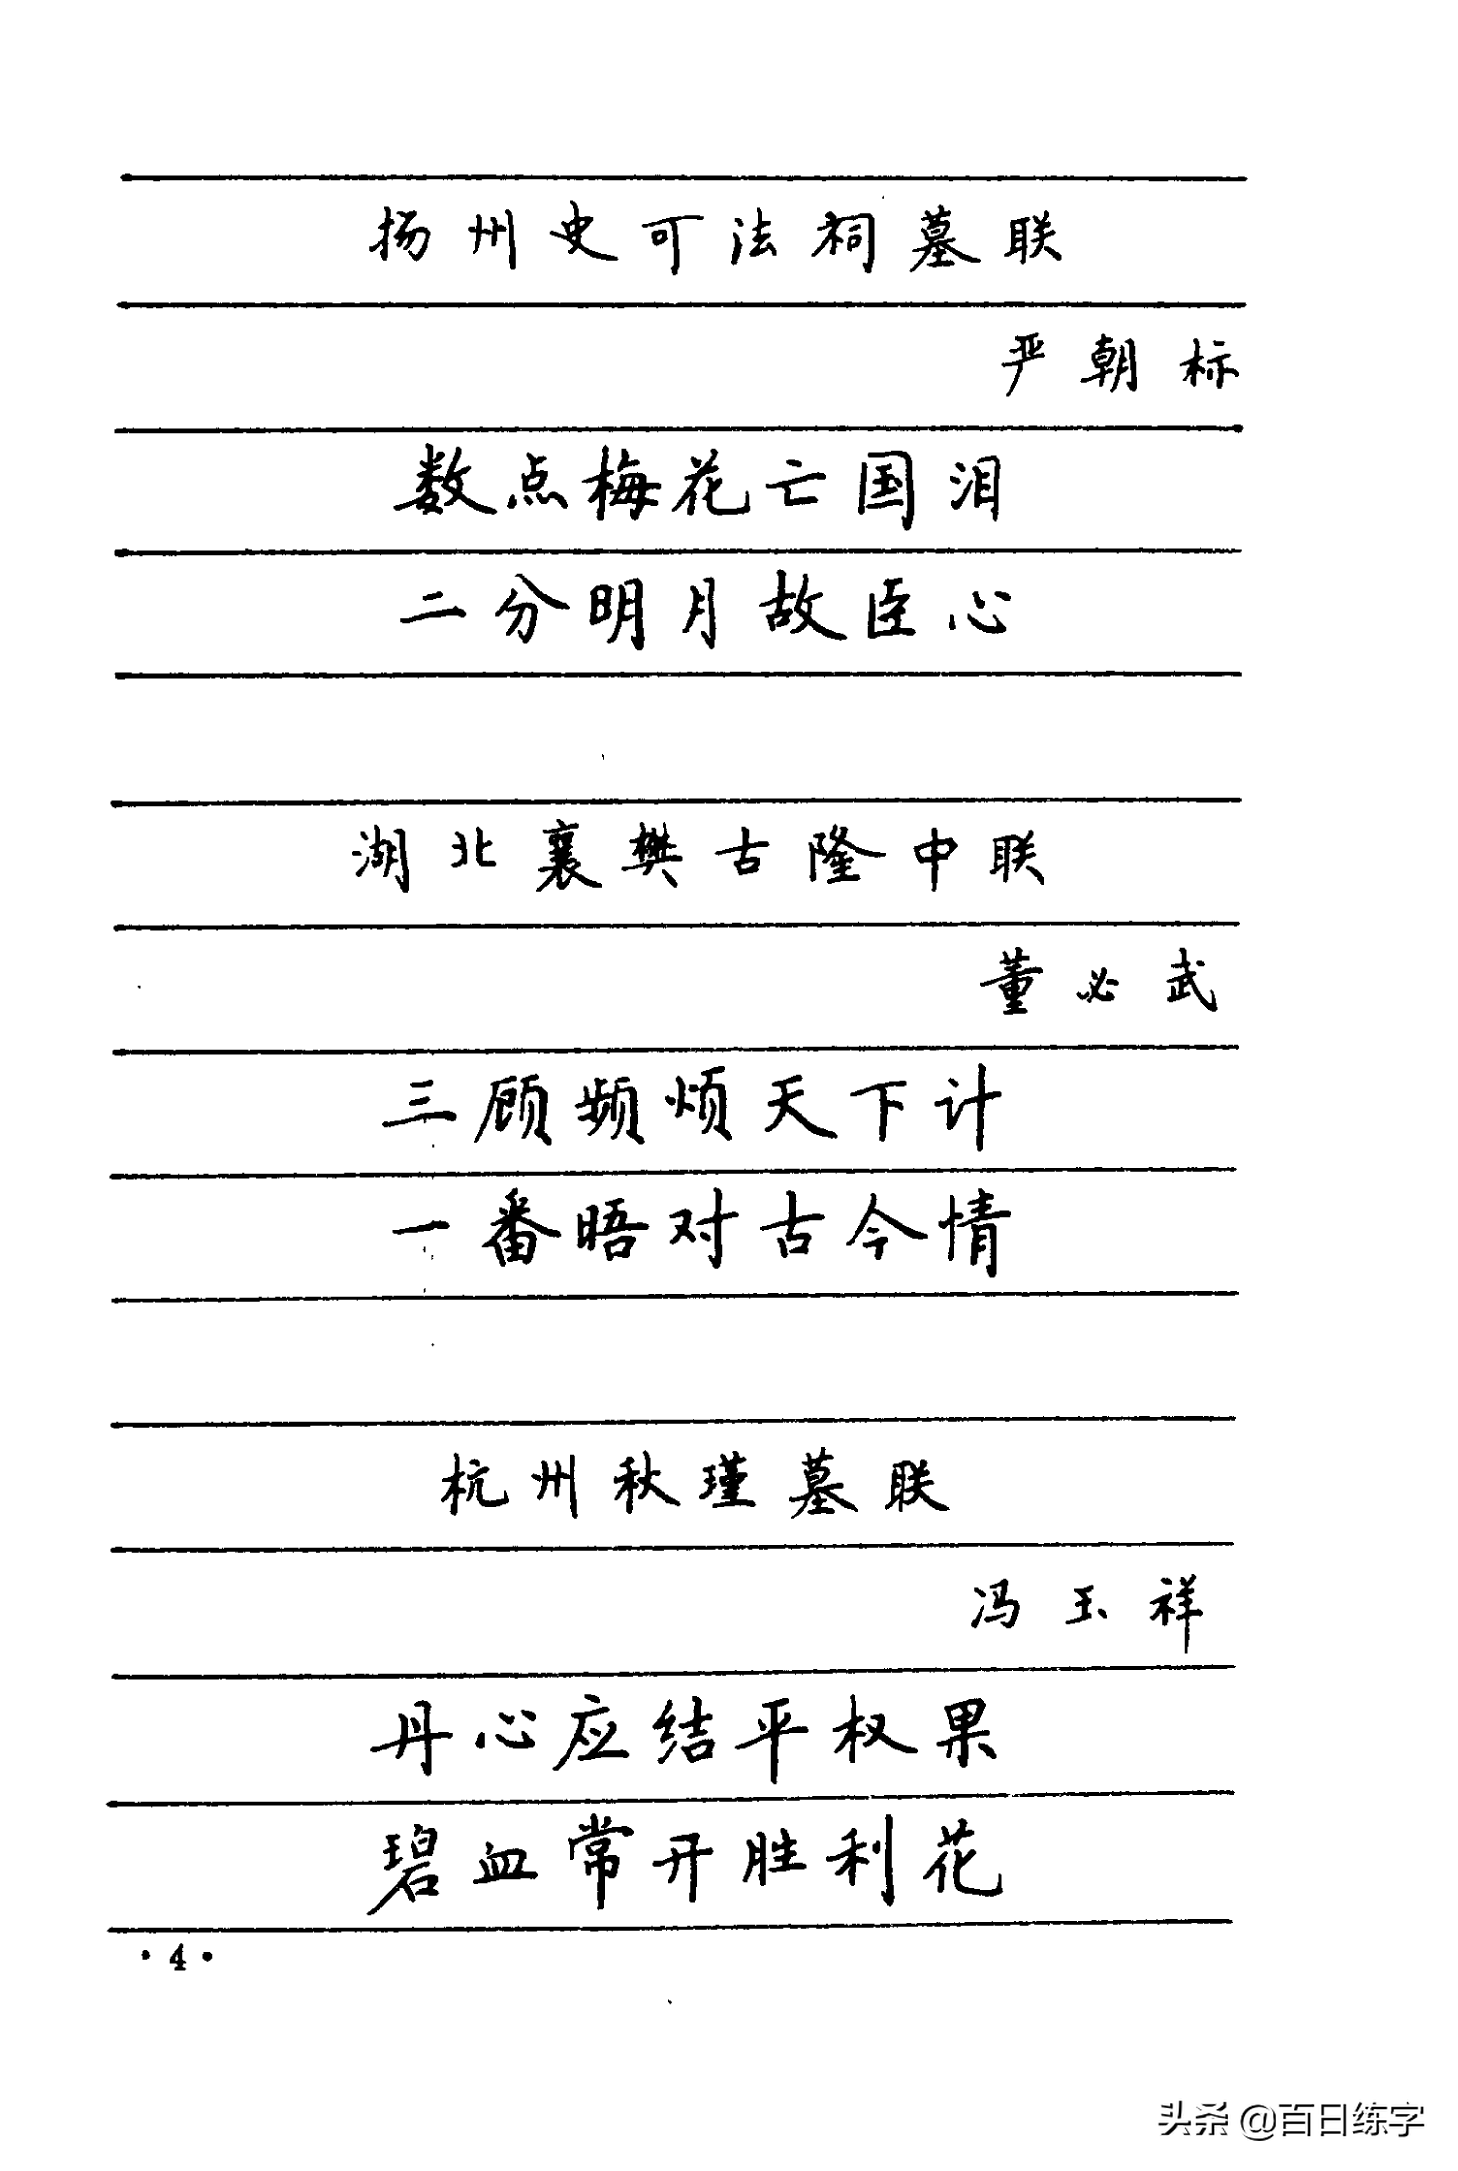 扬州史可法祠墓联
严朝标
数点梅花亡国泪
二分明月故臣心
湖北襄樊古隆中联
董必武
三顾频烦天下计
一番晤对古今情
杭州秋瑾墓联
冯玉祥
丹心应结平权果
碧血常开胜利花
·4·
头条 @百日练字